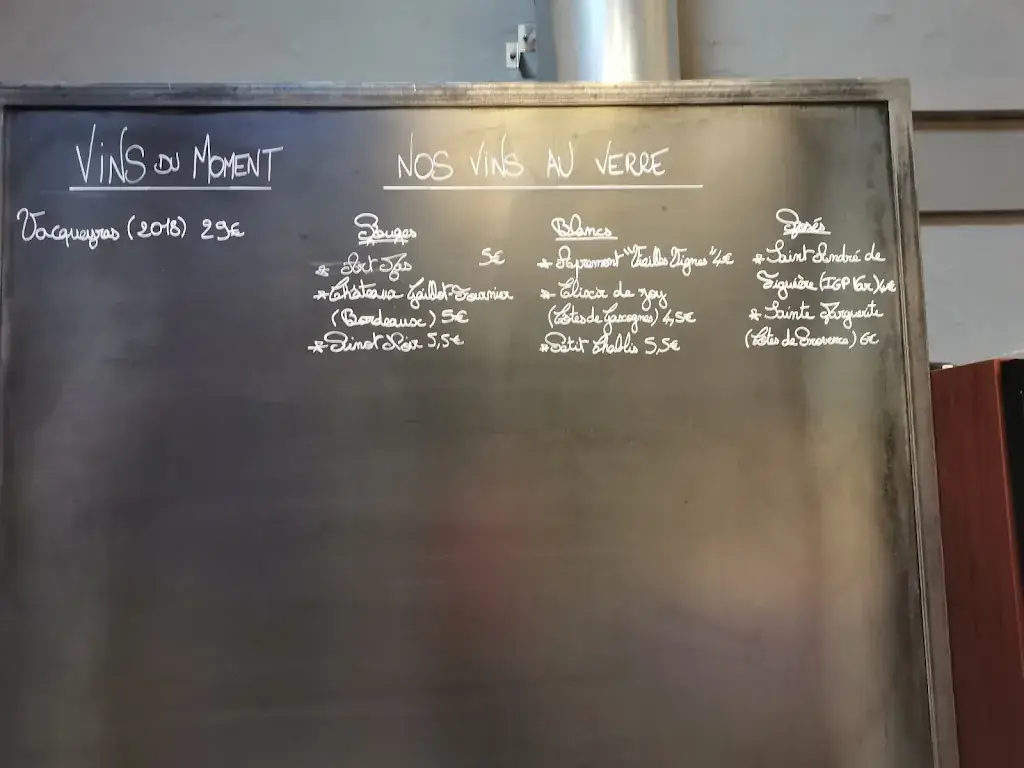 VINS DU MOMENT
Vacqueyras (2018) 29€
NOS VINS AU VERRE
Rouges
* 5€
* Château Gaillot-Fournier
(Bordeaux) 5€
* Pinot Noir 5,5€
Blancs
* Apremont "Vieilles Vignes" 4€
* Elixir de
(Côtes de Gascognes) 4,5€
* Petit Chablis 5,5€
Rosés
* Saint André de
Figuière (IGP Var)
* Sainte Marguerite
(Côtes de Provence) 6€